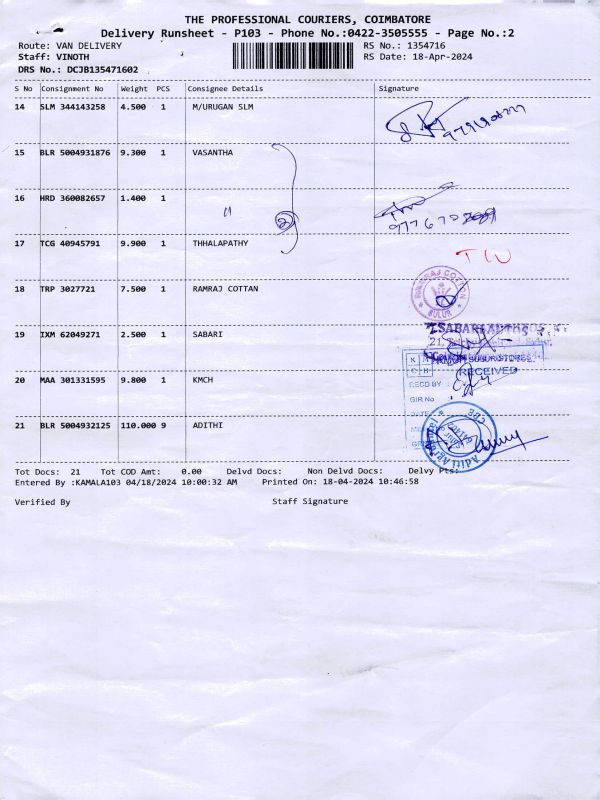 THE PROFESSIONAL COURIERS, COIMBATORE
Delivery Runsheet - P103 - Phone No.:0422-3505555 - Page No.:2
Route: VAN DELIVERY RS No.: 1354716
Staff: VINOTH RS Date: 18-Apr-2024
DRS No.: DCJB135471602
S No Consignment No Weight PCS Consignee Details Signature
14 SLM 344143258 4.500 1 M/URUGAN SLM
15 BLR 5004931876 9.300 1 VASANTHA
16 HRD 360082657 1.400 1 "
17 TCG 40945791 9.900 1 THHALAPATHY
18 TRP 3027721 7.500 1 RAMRAJ COTTAN
RAMRAJ COTTON
SULUR
19 IXM 62049271 2.500 1 SABARI
20 MAA 301331595 9.800 1 KMCH
K M
C H
RECEIVED
RECD BY
GIR No
DATE
21 BLR 5004932125 110.000 9 ADITHI
Tot Docs: 21 Tot COD Amt: 0.00 Delvd Docs: Non Delvd Docs: Delvy Pts:
Entered By :KAMALA103 04/18/2024 10:00:32 AM Printed On: 18-04-2024 10:46:58
Verified By Staff Signature